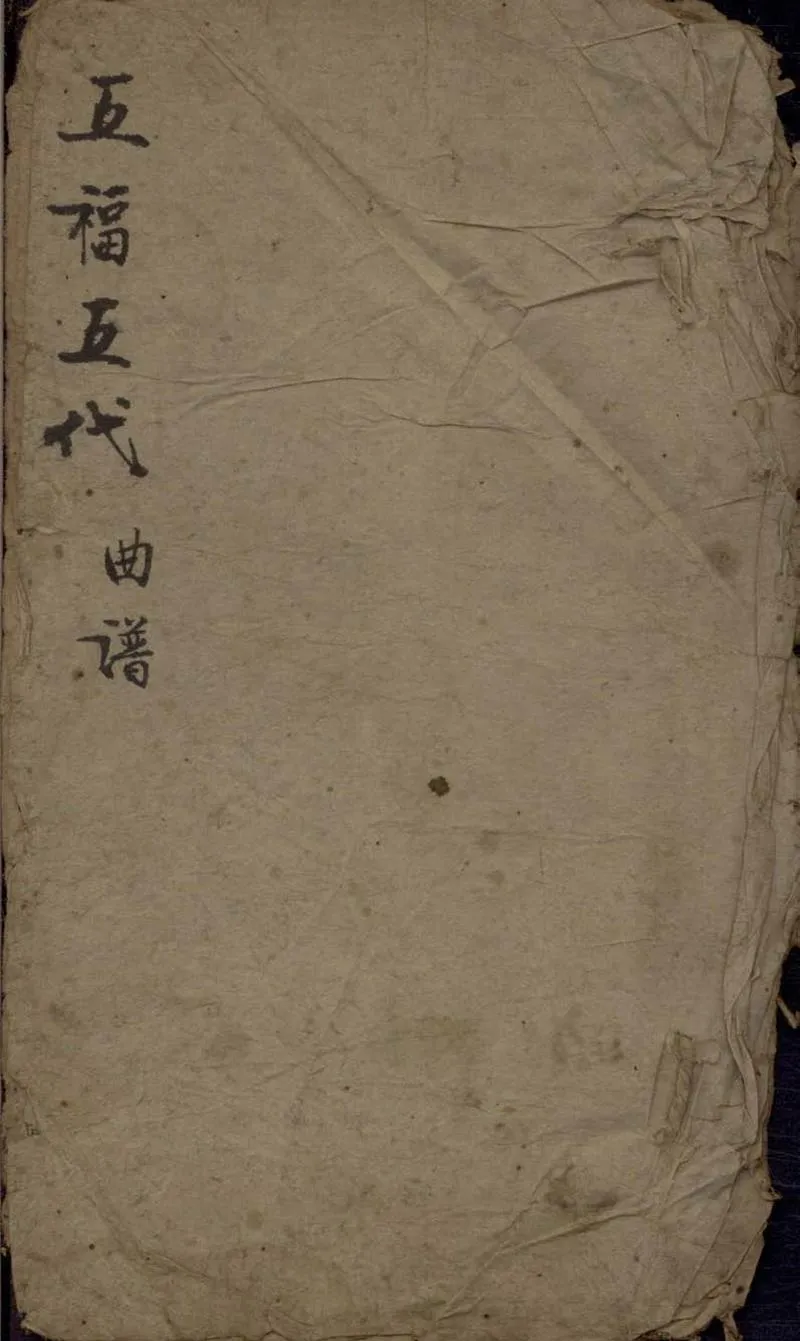 五福五代曲谱